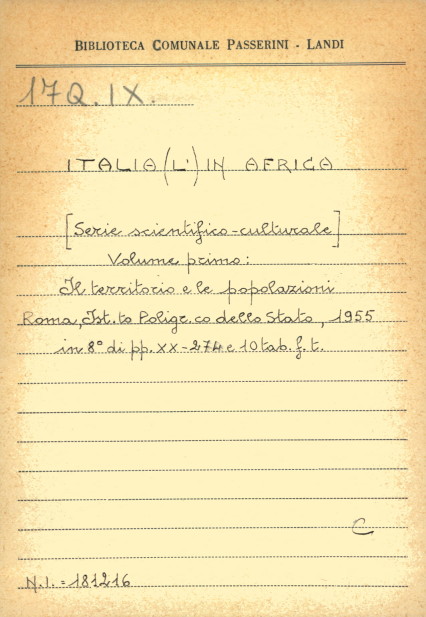 BIBLIOTECA COMUNALE PASSERINI - LANDI
17Q.IX.
ITALIA (L') IN AFRICA
[Serie scientifico-culturale]
Volume primo:
Il territorio e le popolazioni
Roma, Ist.to Poligr.co dello Stato, 1955
in 8° di pp. XX-274 e 10 tab. f. t.
C
N.I. = 181216